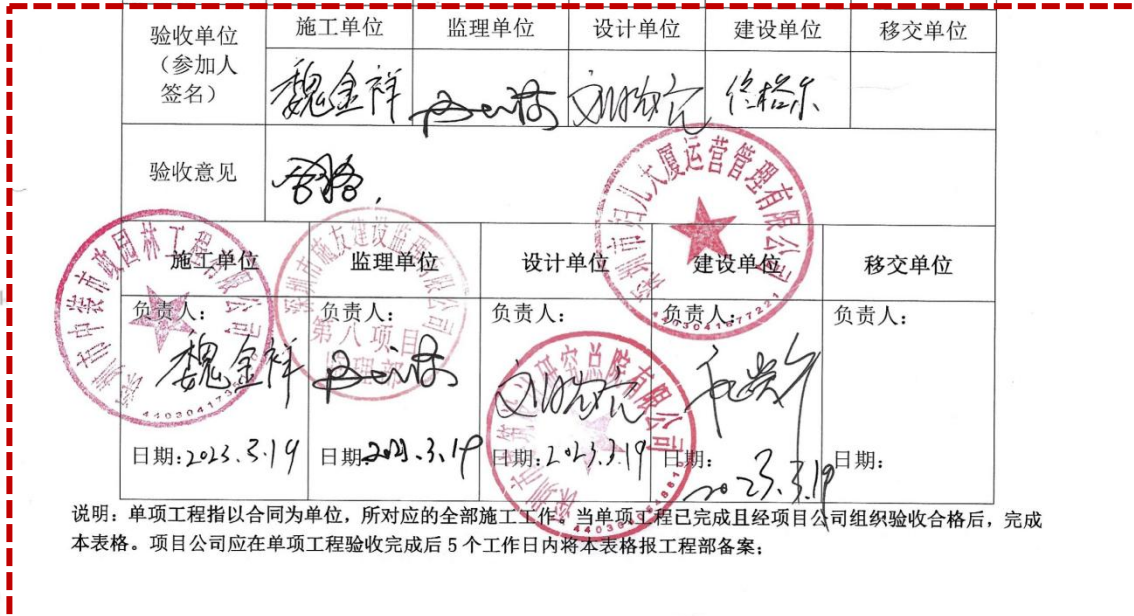 验收单位（参加人签名） 施工单位 监理单位 设计单位 建设单位 移交单位
魏金祥
验收意见 合格,
施工单位 监理单位 设计单位 建设单位 移交单位
负责人： 负责人： 负责人： 负责人： 负责人：
魏金祥
日期:2023.3.19 日期:2023.3.19 日期:2023.3.19 日期:2023.3.19 日期:
深圳市中装市政园林工程有限公司
深圳市施友建设监理有限公司
第八项目
监理部
大厦运营管理有限公司
研究总院有限公司
说明：单项工程指以合同为单位，所对应的全部施工工作。当单项工程已完成且经项目公司组织验收合格后，完成
本表格。项目公司应在单项工程验收完成后 5 个工作日内将本表格报工程部备案；